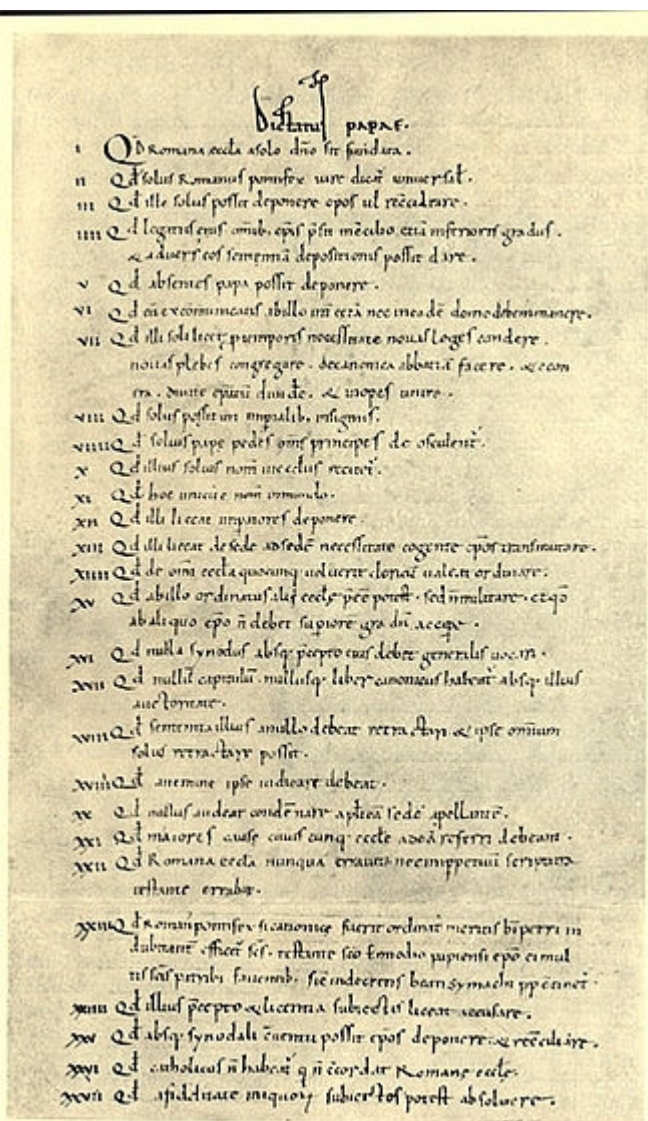 Dictatus papae.
I Qd Romana eccla a solo dño sit fundata.
II Qd solus Romanus pontifex iure dicat universal.
III Qd ille solus possit deponere epos ul recciliare.
IIII Qd legatus eius omib. epis psit in cclio. etia inferioris gradus.
& advers eos sententia depositionis possit dare.
V Qd absentes papa possit deponere.
VI Qd cu excomunicatis ab illo int cetra nec in eade domo debem manere.
VII Qd illi soli licet p temporis necessitate novas leges condere.
novas plebes congregare. de canonica abbatia facere. & e con
tra. divite epatu divide. & inopes unire.
VIII Qd solus possit uti imperialib. insigniis.
VIIII Qd solius pape pedes oms principes deosculent.
X Qd illius solius nom in ecclis recitet.
XI Qd hoc unicu e nom in mundo.
XII Qd illi liceat impatores deponere.
XIII Qd illi liceat de sede ad sede necessitate cogente epos transmutare.
XIIII Qd de omi eccla quocunq voluerit clericu valeat ordinare.
XV Qd ab illo ordinatus alii eccle pee potest. sed n militare. et qd
ab aliquo epo n debet supiore gradu accipe.
XVI Qd nulla synodus absq pcepto eius debet generalis vocari.
XVII Qd nullu capitulu. nullusq liber canonicus habeat absq illius
auctoritate.
XVIII Qd sententia illius a nullo debeat retractari & ipse omnium
solus retractare possit.
XVIIII Qd a nemine ipse iudicare debeat.
XX Qd nullus audeat condemnare aplica sede apellante.
XXI Qd maiores cause cuiuscunq eccle ad ea referri debeant.
XXII Qd Romana eccla nunqua erravit nec imppetuu scriptura
testante errabit.
XXIII Qd Roman pontifex si canonice fuerit ordinat meritis bi petri in
dubitant efficit scs. testante sco Ennodio papiensi epo ei mul
tis scis patribs faventib. sic in decretis beati Symachi pp ctinet.
XXIIII Qd illius pcepto & licentia subiectis liceat accusare.
XXV Qd absq synodali cventu possit epos deponere & recciliare.
XXVI Qd catholicus n habeat q n ccordat Romane eccle.
XXVII Qd a fidelitate iniquor subiectos potest absolvere.